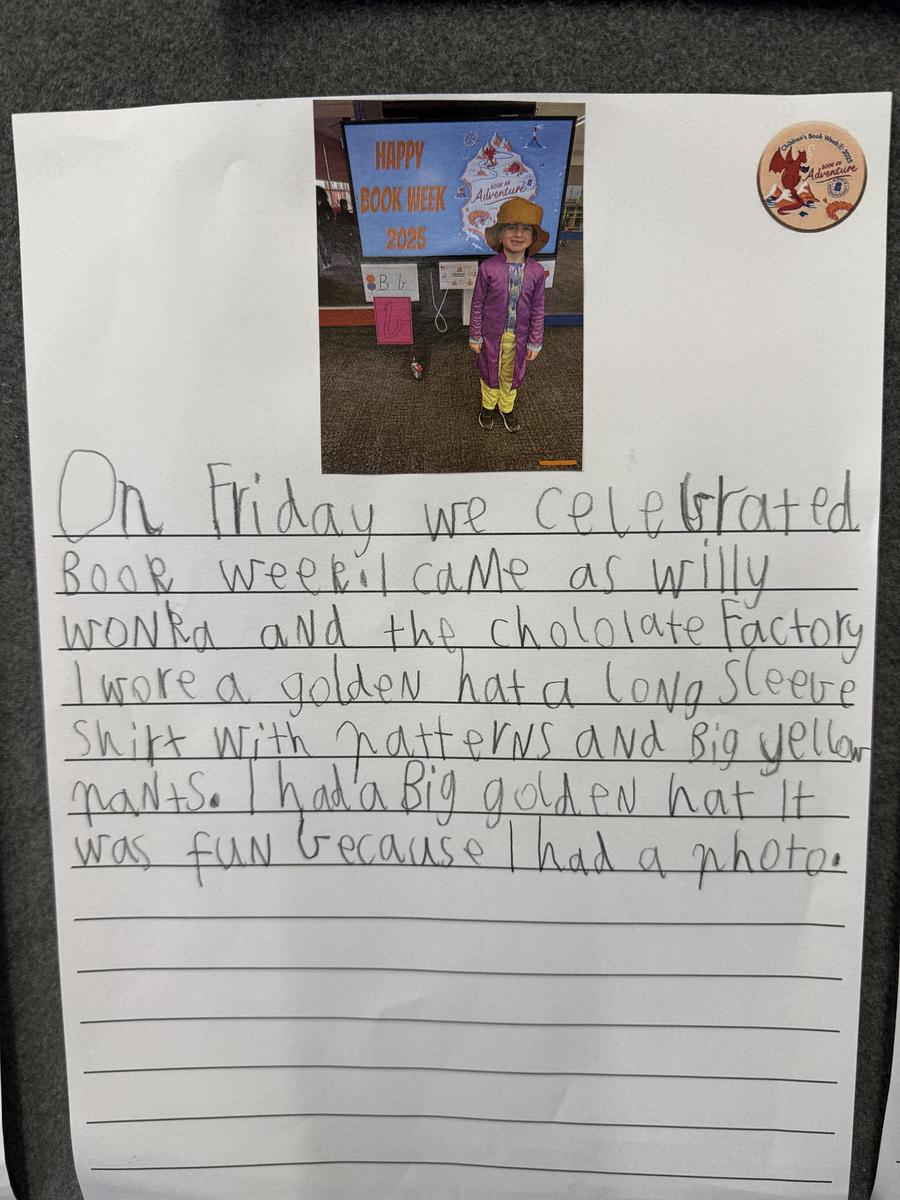 HAPPY
BOOK WEEK
2025
BOOK AN
Adventure
B b
b
Children's Book Week® 2025
BOOK AN
Adventure
On Friday we celebrated
Book week.I came as willy
wonka and the chololate Factory
I wore a golden hat a long Sleeve
Shirt with patterns and Big yellow
pants. I had a Big golden hat It
was fun because I had a photo.